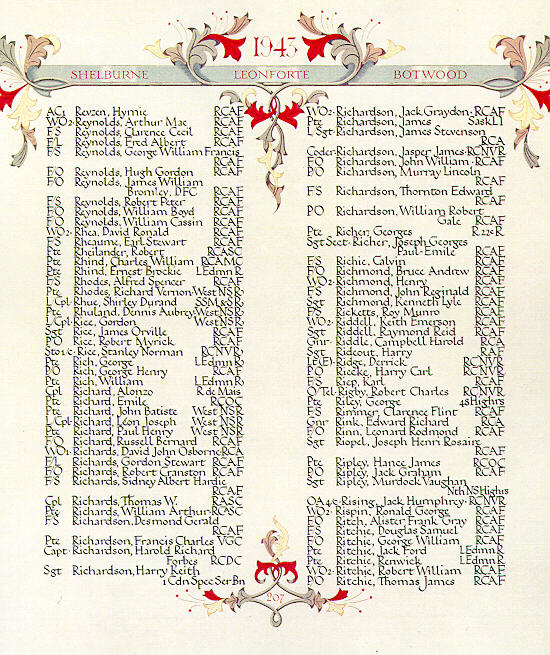 1943
SHELBURNE LEONFORTE BOTWOOD
AC1 Revzen, Hymie RCAF
WO2 Reynolds, Arthur Mac RCAF
FS Reynolds, Clarence Cecil RCAF
F/L Reynolds, Fred Albert RCAF
FS Reynolds, George William Francis
RCAF
F/O Reynolds, Hugh Gordon RCAF
F/O Reynolds, James William
Bromley, DFC RCAF
FS Reynolds, Robert Peter RCAF
F/O Reynolds, William Boyd RCAF
F/O Reynolds, William Cassin RCAF
WO2 Rhea, David Ronald RCAF
FS Rheaume, Earl Stewart RCAF
Pte Rheilander, Robert RCASC
Pte Rhind, Charles William RCAMC
Pte Rhind, Ernest Brockie LEdmn R
FS Rhodes, Alfred Spencer RCAF
Pte Rhodes, Richard Vernon West NSR
L/Cpl Rhue, Shirley Durand SSM&SR
Pte Rhuland, Dennis Aubrey West NSR
L/Cpl Rice, Gordon West NSR
Sgt Rice, James Orville RCAF
P/O Rice, Robert Myrick RCAF
Sto1/c Rice, Stanley Norman RCNVR
Pte Rich, George LEdmn R
P/O Rich, George Henry RCAF
Pte Rich, William LEdmn R
Cpl Richard, Alonzo R de Mais
Pte Richard, Emile RCOC
Pte Richard, John Batiste West NSR
L/Cpl Richard, Léon Joseph West NSR
Pte Richard, Paul Henry West NSR
F/O Richard, Russell Bernard RCAF
WO1 Richards, David John Osborne RCA
F/L Richards, Gordon Stewart RCAF
F/O Richards, Robert Cranston RCAF
FS Richards, Sidney Albert Hardie
RCAF
Cpl Richards, Thomas W. RASC
Pte Richards, William Arthur RCASC
FS Richardson, Desmond Gerald
RCAF
Pte Richardson, Francis Charles VGC
Capt Richardson, Harold Richard
Forbes RCDC
Sgt Richardson, Harry Keith
1 Cdn Spec Ser Bn
WO2 Richardson, Jack Graydon RCAF
Pte Richardson, James Sask L I
L/Sgt Richardson, James Stevenson
RCA
Coder Richardson, Jasper James RCNVR
F/O Richardson, John William RCAF
P/O Richardson, Murray Lincoln
RCAF
FS Richardson, Thornton Edward
RCAF
P/O Richardson, William Robert
Gale RCAF
Pte Richer, Georges R 22e R
Sgt Sect Richer, Joseph Georges
Paul-Emile RCAF
FS Richie, Calvin RCAF
F/O Richmond, Bruce Andrew RCAF
WO2 Richmond, Henry RCAF
FS Richmond, John Reginald RCAF
Sgt Richmond, Kenneth Lyle RCAF
FS Ricketts, Roy Munro RCAF
WO2 Riddell, Keith Emerson RCAF
Sgt Riddell, Raymond Reid RCAF
Gnr Riddle, Campbell Harold RCA
Sgt Rideout, Harry RAF
Lt(E) Ridge, Derrick RCNVR
P/O Riecke, Harry Carl RCNVR
FS Riep, Karl RCAF
O/Tel Rigby, Robert Charles RCNVR
Pte Riley, George 48Highrs
FS Rimmer, Clarence Flint RCAF
Gnr Rink, Edward Richard RCA
F/O Rinn, Leonard Rodmond RCAF
Sgt Riopel, Joseph Henri Rosaire
RCAF
Pte Ripley, Hance James RCOC
P/O Ripley, Jack Graham RCAF
Sgt Ripley, Murdock Vaughan
Nth NS Highrs
OA4/c Rising, Jack Humphrey RCNVR
WO2 Rispin, Ronald George RCAF
F/O Ritch, Alister Frank Gray RCAF
FS Ritchie, Douglas Samuel RCAF
F/O Ritchie, George William RCAF
Pte Ritchie, Jack Ford LEdmn R
Pte Ritchie, Renwick LEdmn R
WO2 Ritchie, Robert William RCAF
P/O Ritchie, Thomas James RCAF
207